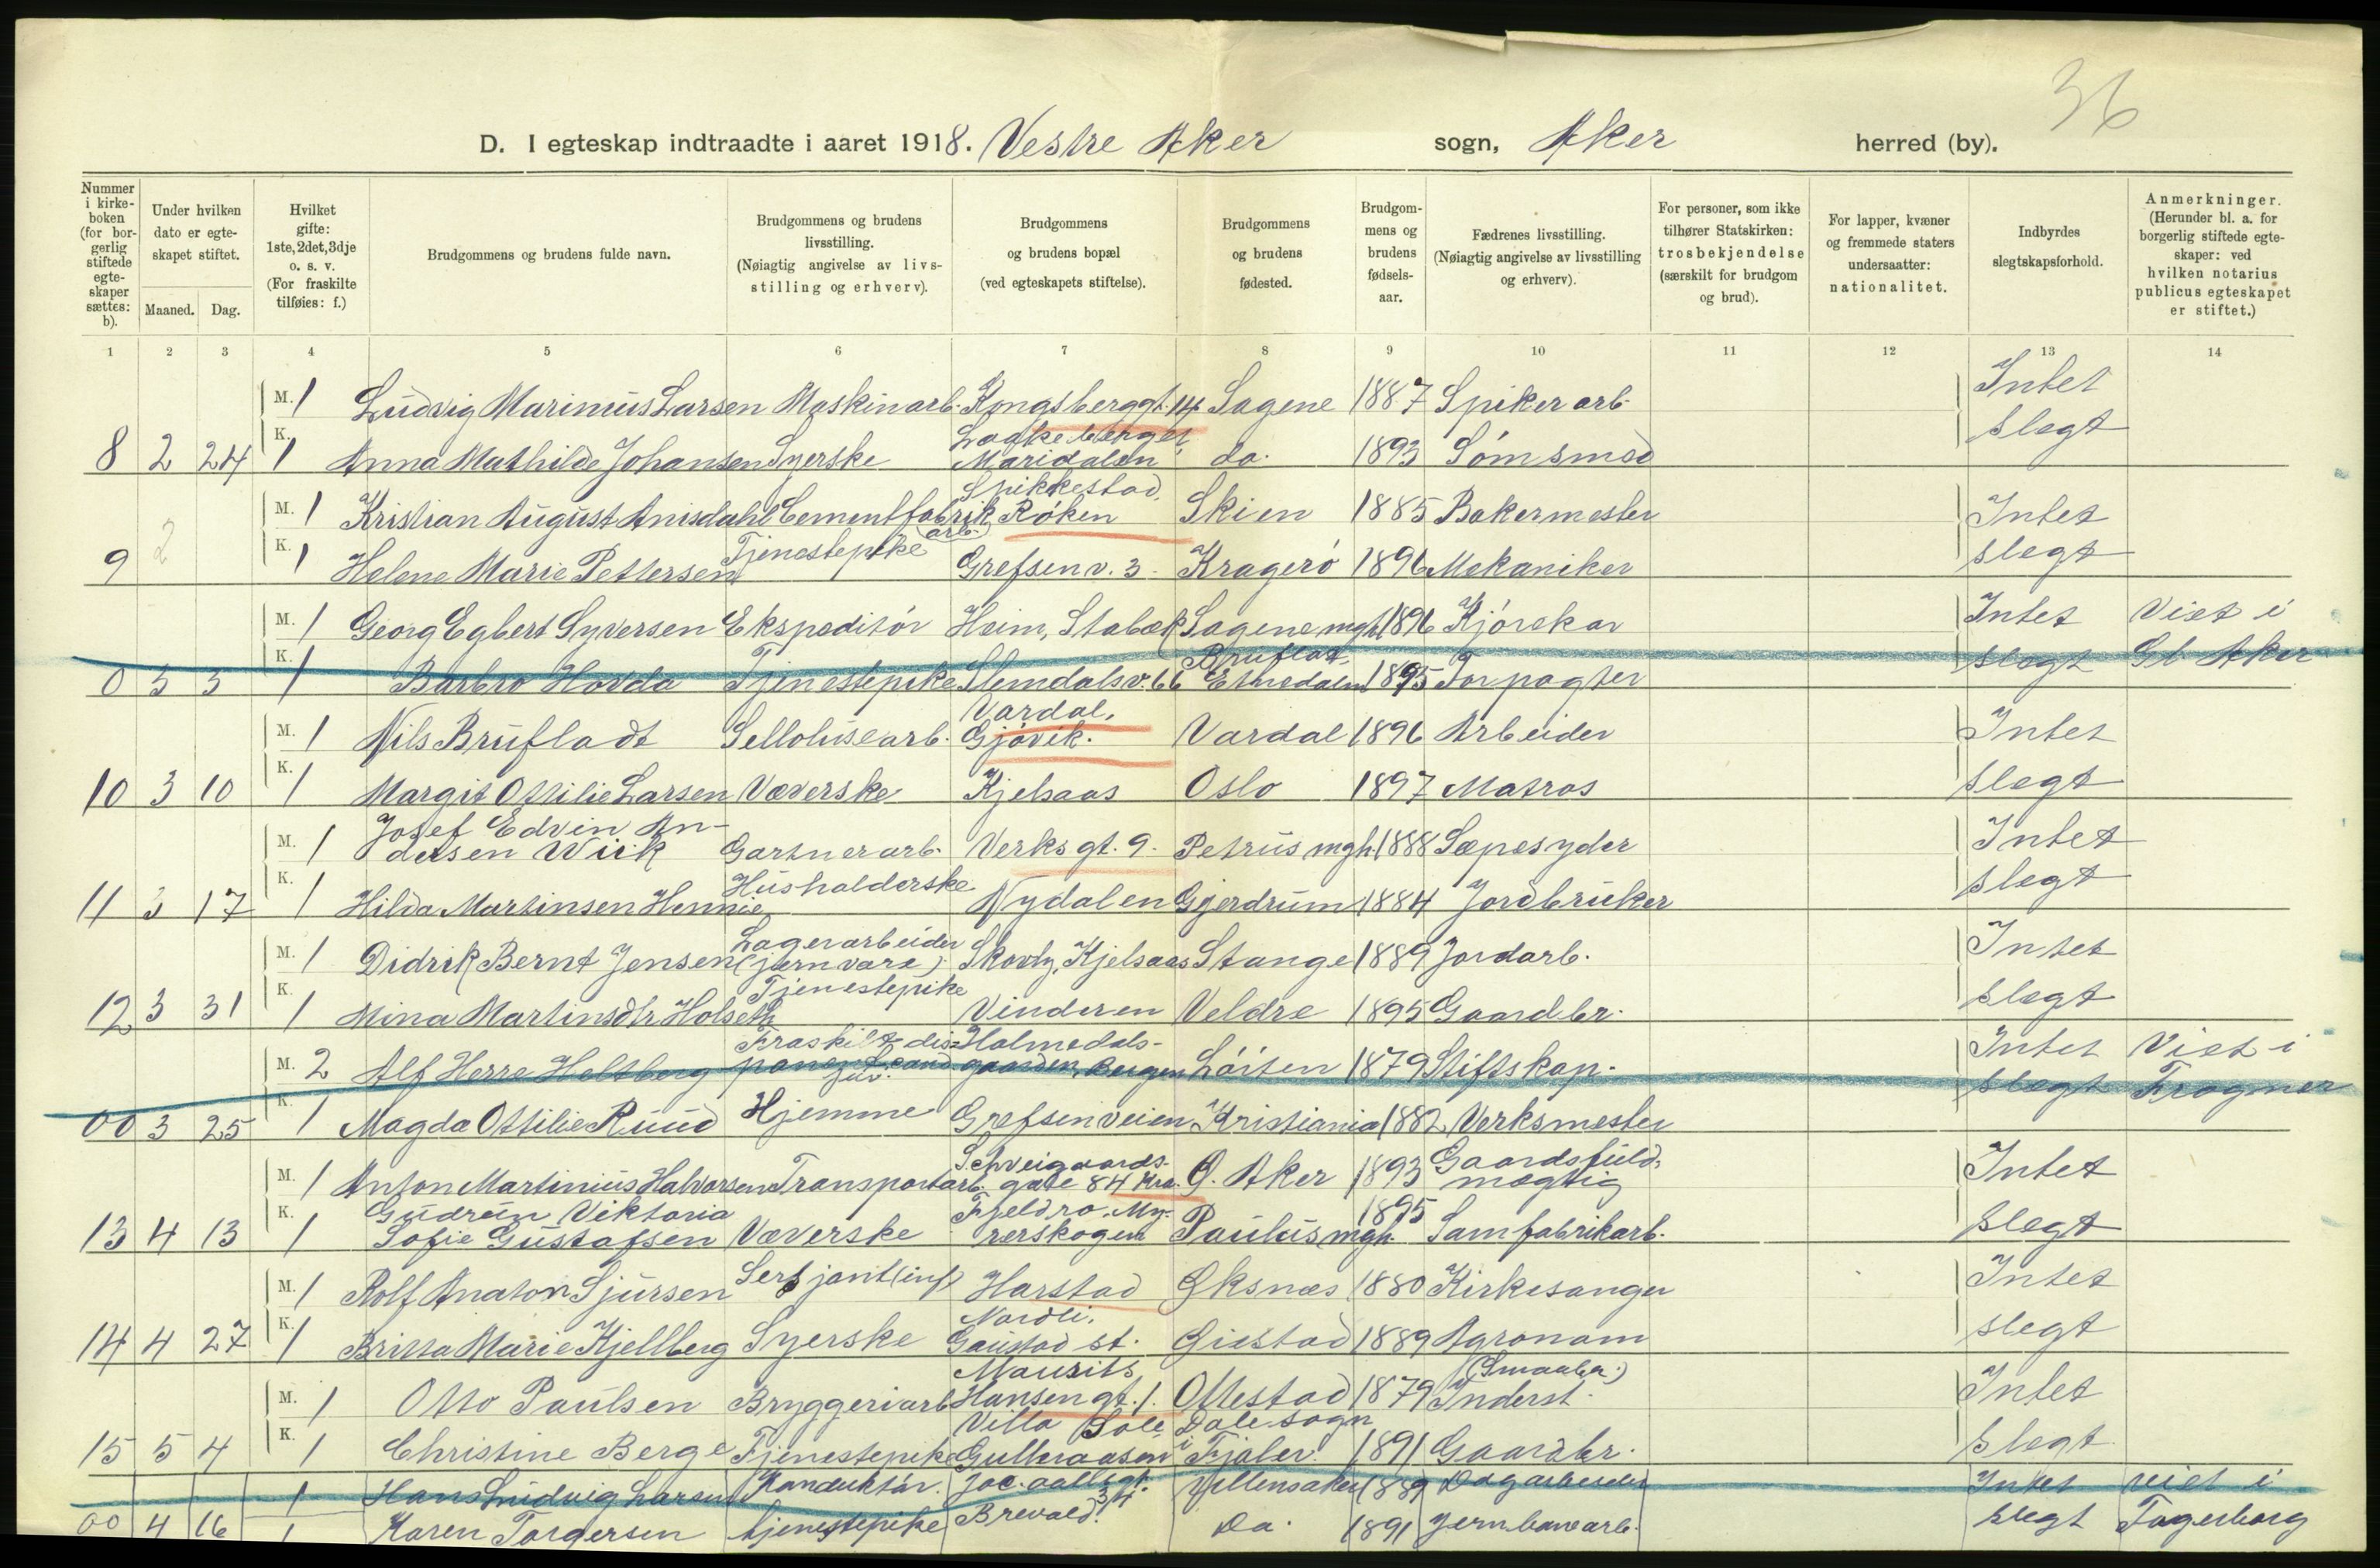 36
D. I egteskap indtraadte i aaret 1918. Vestre Aker sogn, Aker herred (by).
Nummer i kirke-boken (for bor-gerlig stiftede egte-skaper sættes: b).
Under hvilken dato er egte-skapet stiftet.
Maaned. Dag.
Hvilket gifte: 1ste, 2det, 3dje o. s. v. (For fraskilte tilføies: f.)
Brudgommens og brudens fulde navn.
Brudgommens og brudens livsstilling. (Nøiagtig angivelse av livs-stilling og erhverv).
Brudgommens og brudens bopæl (ved egteskapets stiftelse).
Brudgommens og brudens fødested.
Brudgom-mens og brudens fødsels-aar.
Fædrenes livsstilling. (Nøiagtig angivelse av livsstilling og erhverv).
For personer, som ikke tilhører Statskirken: trosbekjendelse (særskilt for brudgom og brud).
For lapper, kvæner og fremmede staters undersaatter: nationalitet.
Indbyrdes slegtskapsforhold.
Anmerkninger. (Herunder bl. a. for borgerlig stiftede egte-skaper: ved hvilken notarius publicus egteskapet er stiftet.)
1 2 3 4 5 6 7 8 9 10 11 12 13 14
M. 1 Ludvig Marinius Larsen Maskinarb. Kongsberggt. 14 Sagene 1887 Spikerarb. Intet
8 2 24 K. 1 Anna Mathilde Johansen Syerske Maridalen do. 1893 Sømsmed slegt
M. 1 Kristian August Anisdahl Cementfabrik arb. Spikkestad, Røken Skien 1885 Bakermester Intet
9 2 K. 1 Helene Marie Pettersen Tjenestepike Grefsenv. 3. Kragerø 1896 Mekaniker slegt
M. 1 Georg Egbert Syversen Ekspeditør Heim, Stabæk Sagene mgh. 1896 Kjørekar Intet Viet i
0 3 3 K. 1 Barbro Hovda Tjenestepike Slemdalsv. 66 Bruflat, Etnedalen 1895 Forpagter slegt Gl. Aker
M. 1 Nils Brufladt Sellolusearb. Vardal, Gjøvik. Vardal 1896 Arbeider Intet
10 3 10 K. 1 Margit Ottilie Larsen Væverske Kjelsaas Oslo 1897 Matros slegt
M. 1 Josef Edvin An-dersen Wiik Gartnerarb. Verksgt. 9. Petrus mgh. 1888 Sæpesyder Intet
11 3 17 K. 1 Hilda Martinsen Hennie Husholderske Nydalen Gjerdrum 1884 Jordbruker slegt
M. 1 Didrik Bernt Jensen Lagerarbeider (jernvare) Skovly, Kjelsaas Stange 1889 Jordarb. Intet
12 3 31 K. 1 Mina Martinsdtr Holseth Tjenestepike Vinderen Veldre 1895 Gaardbr. slegt
M. 2 Alf Herre Holtberg Fraskilt dis-ponent cand. jur. Holmedals-gaarden, Bergen Løiten 1879 Stiftskap. Intet Viet i
00 3 25 K. 1 Magda Ottilie Ruud Hjemme Grefsenveien Kristiania 1882 Verksmester slegt Frogner
M. 1 Anton Martinius Halvorsen Transportarb. Schveigaards-gate 84 Kra. G. Aker 1893 Gaardsfuld-mægtig Intet
13 4 13 K. 1 Gudrun Viktoria Sofie Gustafsen Væverske Fjeldro. My-rerskogen Paulus mgh. 1895 Sæmfabrikarb. slegt
M. 1 Rolf Anaton Sjursen Sersjant (inf) Harstad Øksnæs 1880 Kirkesanger Intet
14 4 27 K. 1 Britta Marie Kjellberg Syerske Nordli, Gaustad st. Giestad 1889 Agronom slegt
M. 1 Otto Paulsen Bryggeriarb. Maurits Hansen gt. 1. Ottestad 1879 (Smaabr.) Inderst. Intet
15 5 4 K. 1 Christine Berge Tjenestepike Villa Sole, Gulleraasen Dale sogn i Fjaler. 1891 Gaardbr. slegt
1 Hans Ludvig Larsen Konduktør. Jac. aallsgt. 34. Ullensaker 1889 Dagarbeider Intet viet i
00 4 16 1 Karen Torgersen tjenestepike Brevald. Do. 1891 Jernbanearb. slegt Fagerborg